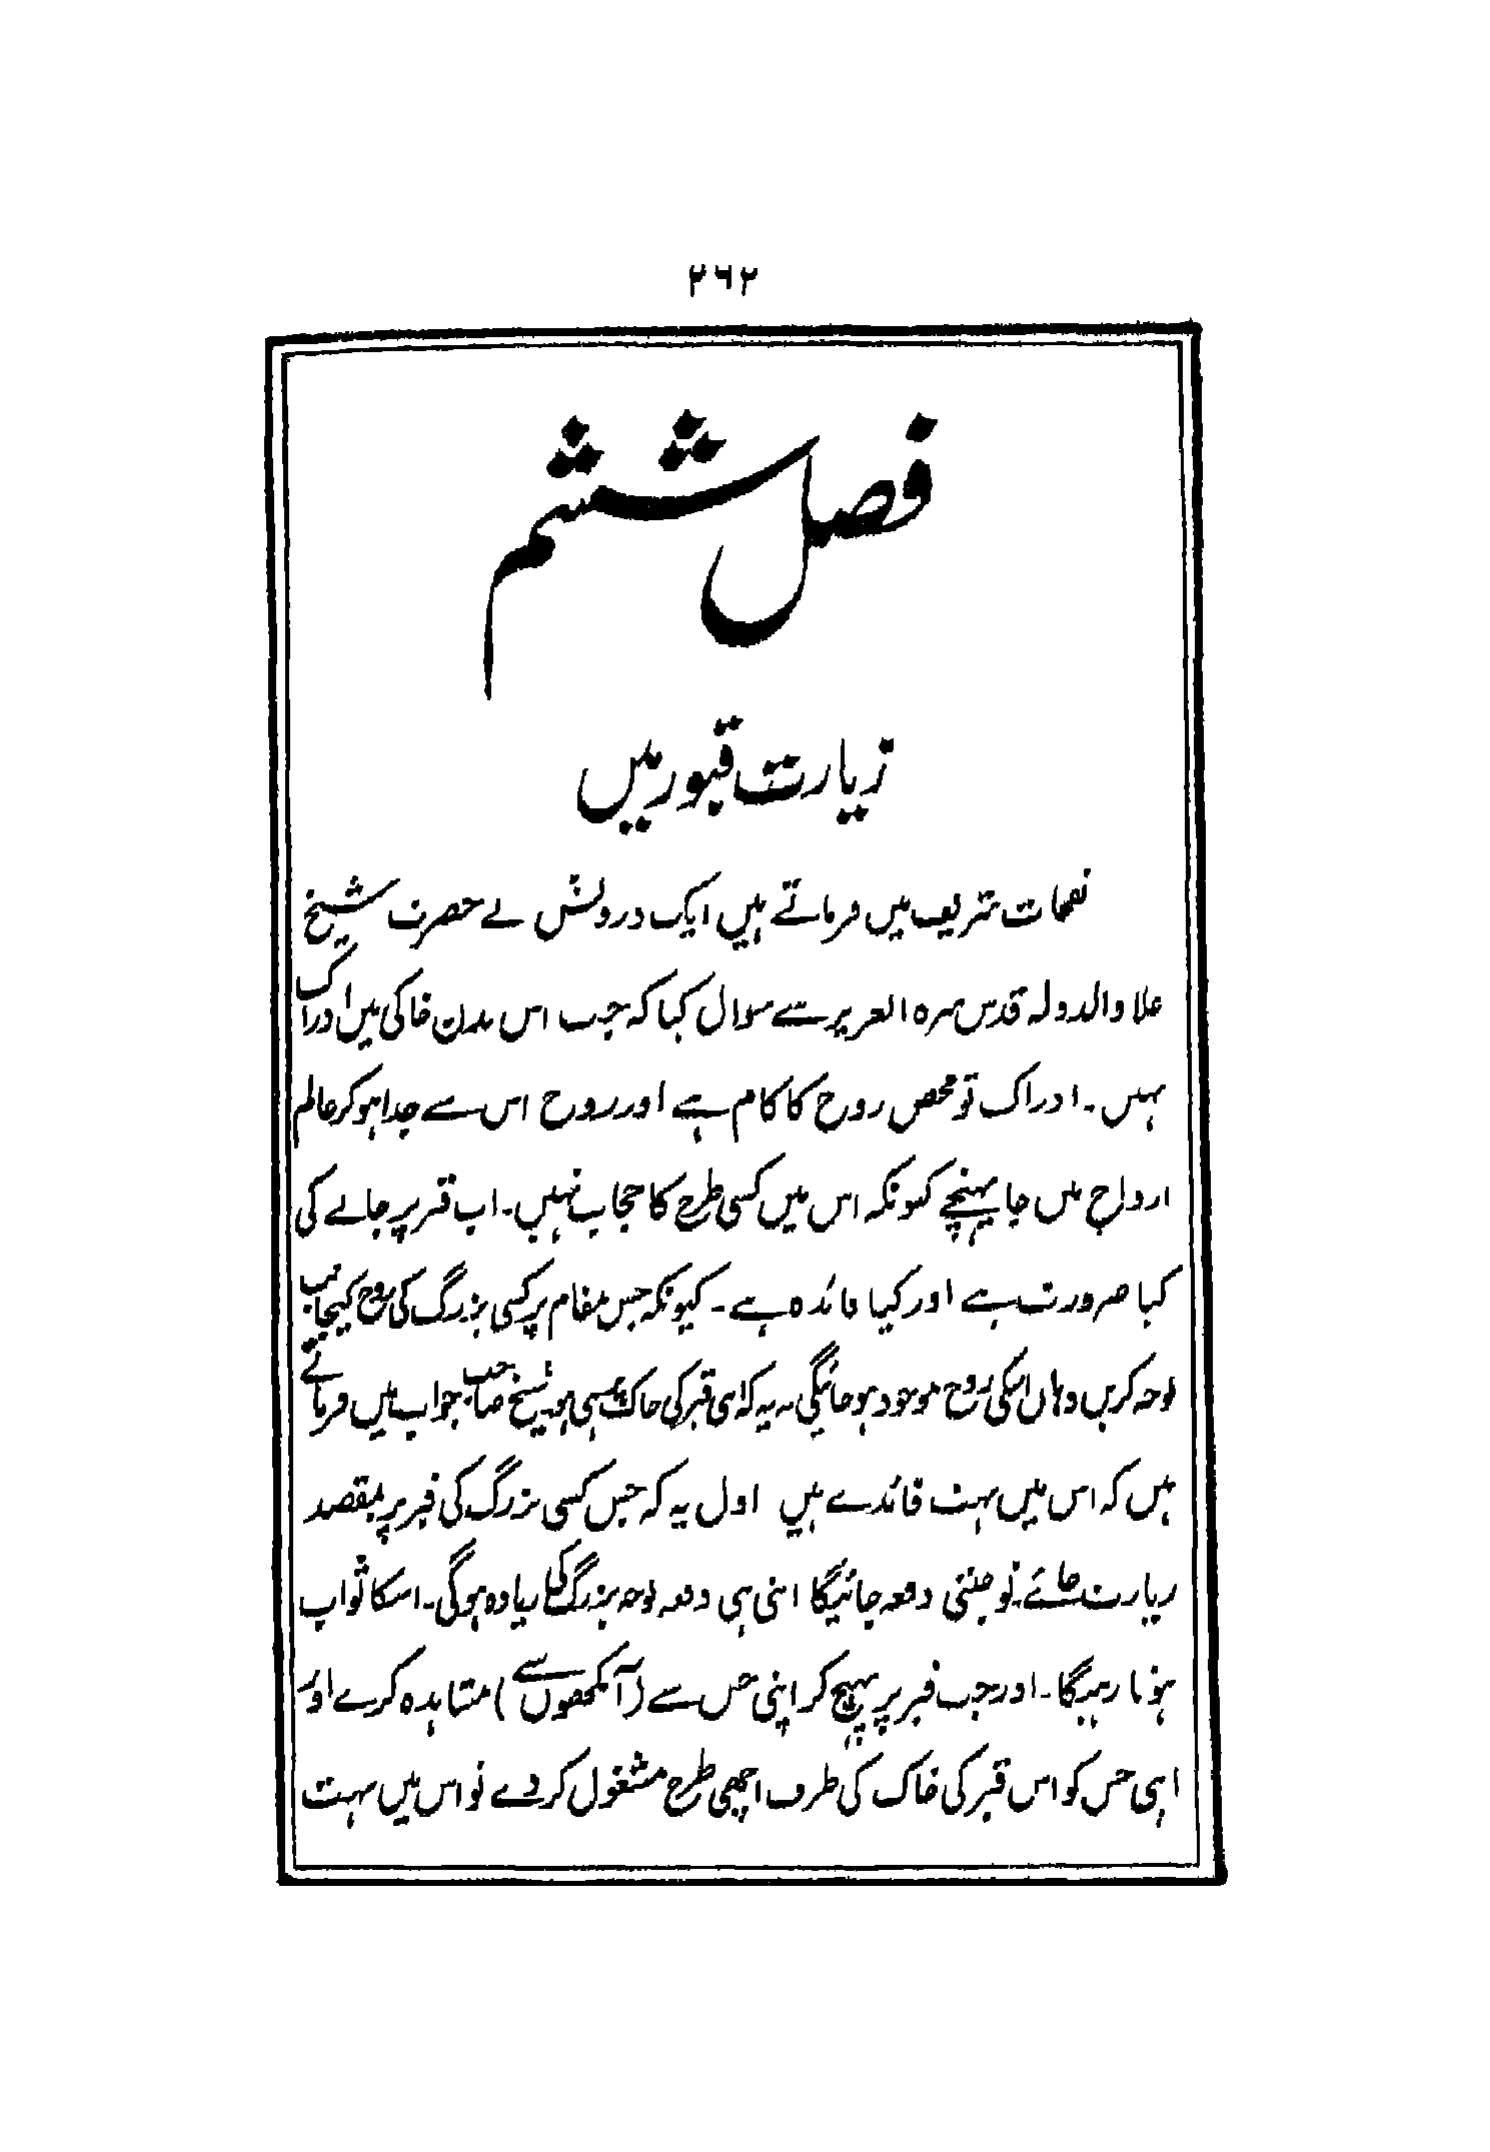 ۲۶۲
فصل ششم
زیارت قبور میں
نفحات شریف میں فرماتے ہیں ایک درویش نے حضرت شیخ
علاو الدولہ قدس سرہ العزیز سے سوال کیا کہ جب اس بدن خاکی میں ادراک
نہیں۔ ادراک تو محض روح کا کام ہے اور روح اس سے جدا ہو کر عالم
ارواح میں جا پہنچے کیونکہ اس میں کسی طرح کا حجاب نہیں۔ اب قبر پر جانے کی
کیا ضرورت ہے اور کیا فائدہ ہے۔ کیونکہ جس مقام پر کسی بزرگ کی روح کیجانب
توجہ کریں وہاں اسکی روح موجود ہو جائیگی۔ نہ یہ کہ اسی قبر کی خاک میں ہی ہو۔ شیخ صاحب جواب میں فرماتے
ہیں کہ اس میں بہت فائدے ہیں اول یہ کہ جس کسی بزرگ کی قبر پر بمقصد
زیارت جائے۔ تو جتنی دفعہ جائیگا اتنی ہی دفعہ توجہ بزرگ کی زیادہ ہوگی۔ اسکا ثواب
ہوتا رہیگا۔ اور جب قبر پر پہنچ کر اپنی حس سے (آنکھوں سے) مشاہدہ کرے اور
اپنی حس کو اس قبر کی خاک کی طرف اچھی طرح مشغول کر دے تو اس میں بہت